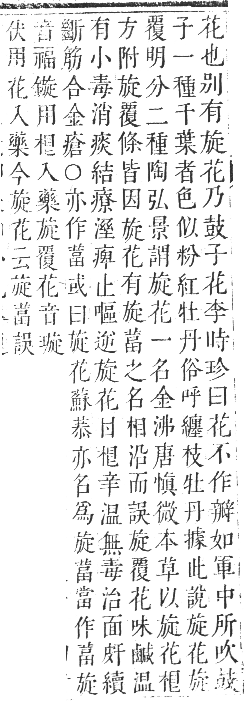 花也别有旋花乃鼓子花李時珍曰花不作瓣如軍中所吹鼓
子一種千葉者色似粉紅牡丹俗呼纏枝牡丹據此說旋花旋
覆明分二種陶弘景謂旋花一名金沸唐慎微本草以旋花根
方附旋覆條皆因旋花有旋葍之名相沿而誤旋覆花味鹹温
有小毒消痰結療溼痺止嘔逆旋花甘根辛温無毒治面皯續
斷筋合金瘡○亦作葍或曰旋花蘇恭亦名爲旋葍當作葍旋
音福鏇用根入藥旋覆花音璇
使用花入藥今旋花云旋葍誤